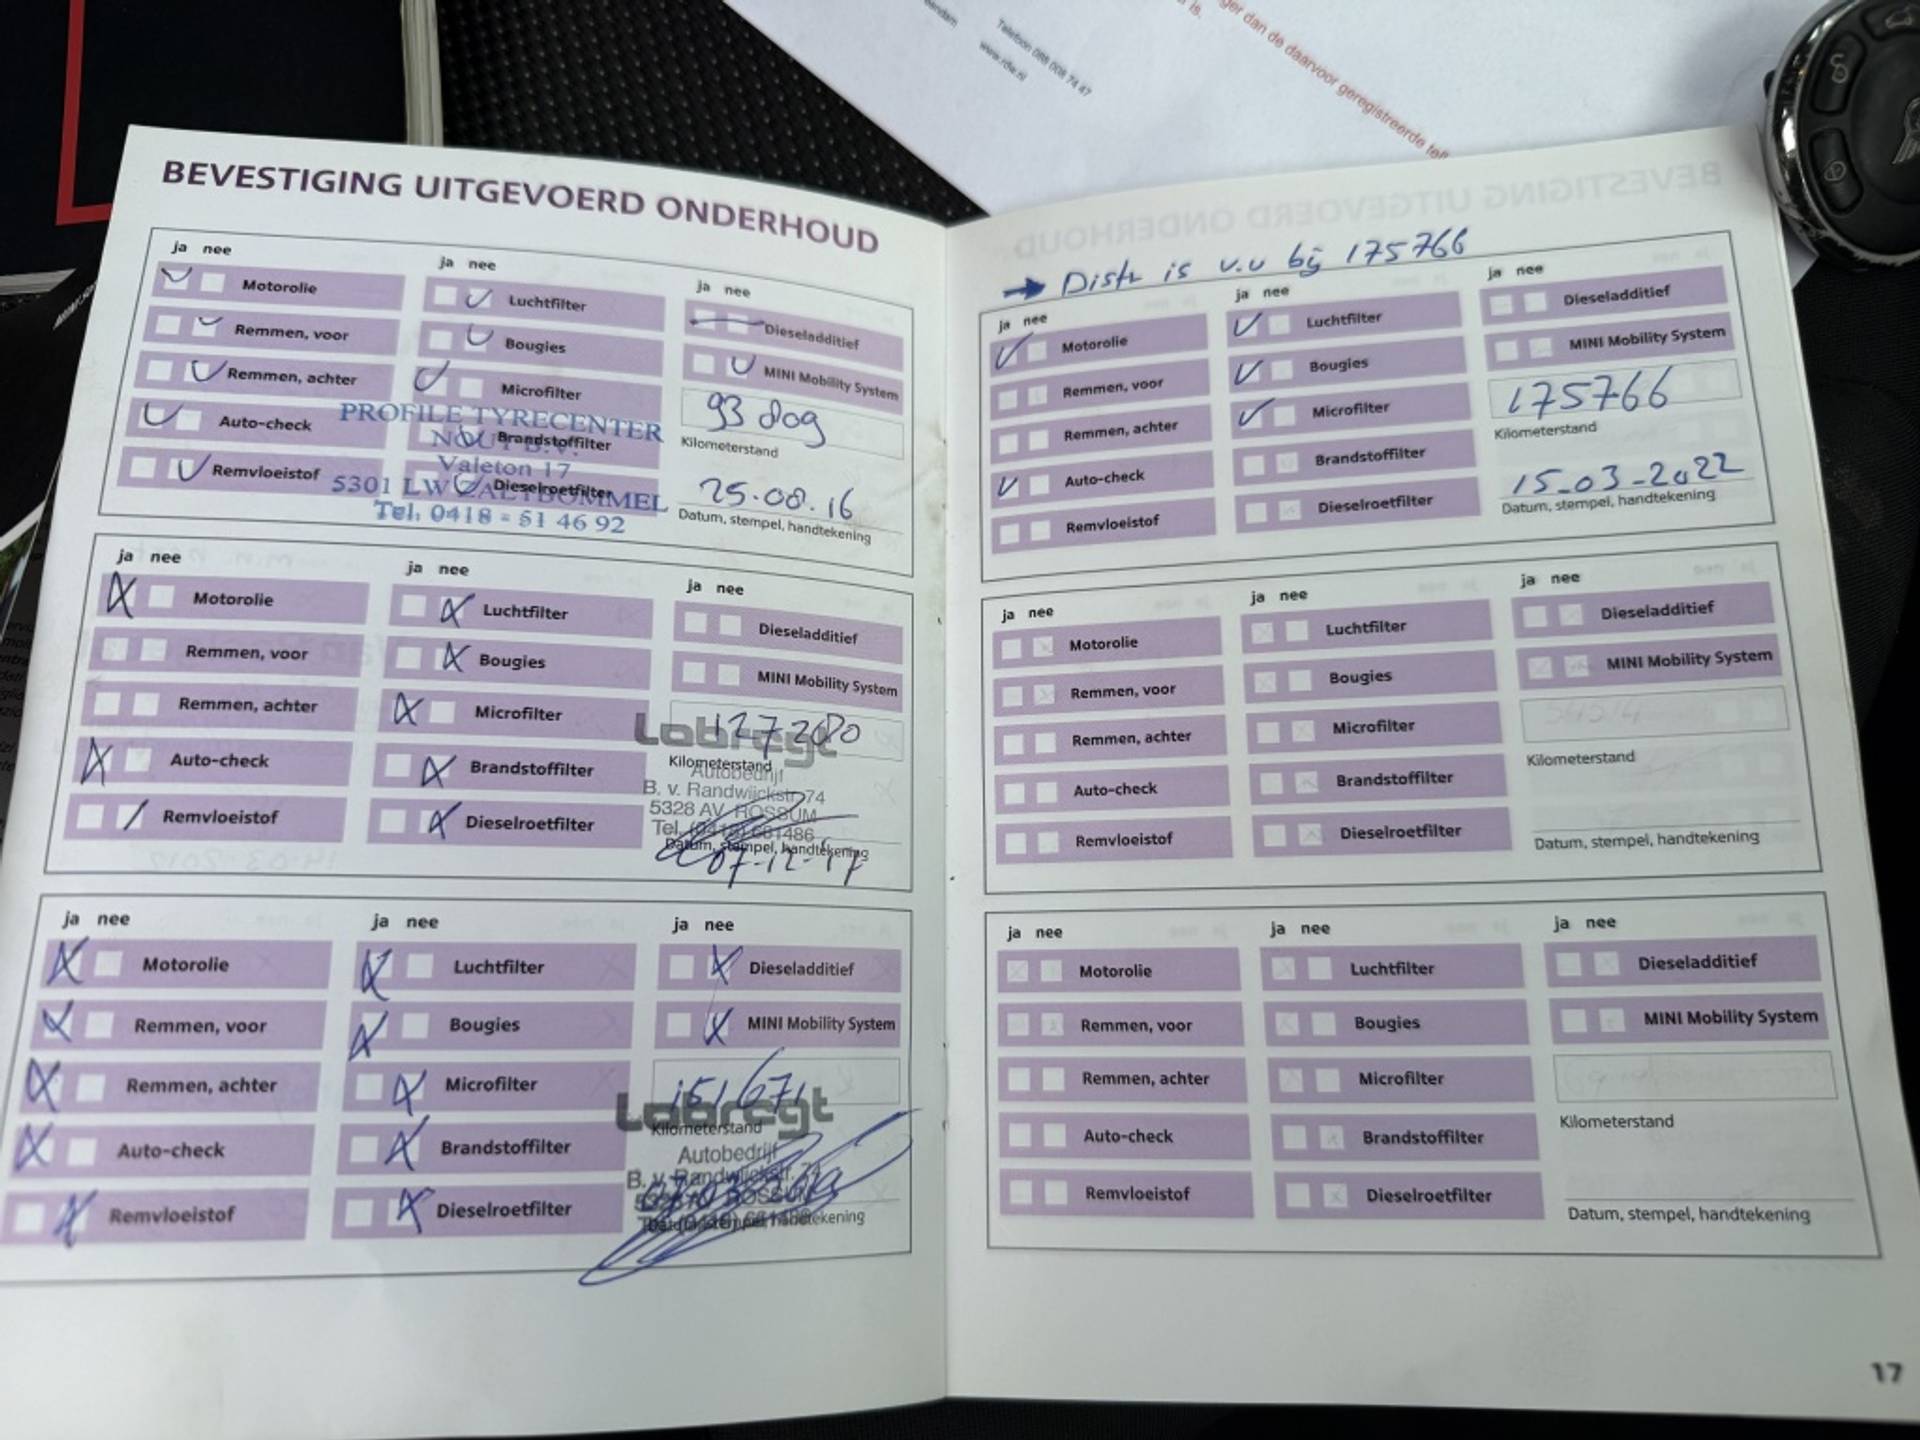 Telefoon 088 008 74 47
www.rdw.nl
ger dan de daarvoor geregistreerde
BEVESTIGING UITGEVOERD ONDERHOUD
ja nee
Motorolie
Remmen, voor
Remmen, achter
Auto-check
Remvloeistof
ja nee
Luchtfilter
Bougies
Microfilter
Brandstoffilter
Dieselroetfilter
ja nee
Dieseladditief
MINI Mobility System
93 809
Kilometerstand
25.08.16
Datum, stempel, handtekening
PROFILE TYRECENTER
NOUT B.V.
Valeton 17
5301 LW ZALTBOMMEL
Tel. 0418 - 51 46 92
ja nee
Motorolie
Remmen, voor
Remmen, achter
Auto-check
Remvloeistof
ja nee
Luchtfilter
Bougies
Microfilter
Brandstoffilter
Dieselroetfilter
ja nee
Dieseladditief
MINI Mobility System
127280
Kilometerstand
Labregt
Autobedrijf
B. v. Randwijckstr. 74
5328 AV ROSSUM
Tel. (0418) 661486
Datum, stempel, handtekening
07-12-17
ja nee
Motorolie
Remmen, voor
Remmen, achter
Auto-check
Remvloeistof
ja nee
Luchtfilter
Bougies
Microfilter
Brandstoffilter
Dieselroetfilter
ja nee
Dieseladditief
MINI Mobility System
151671
Kilometerstand
Labregt
Autobedrijf
B. v. Randwijckstr. 74
5328 AV ROSSUM
Datum, stempel, handtekening
→ Distr is v.v bij 175766
ja nee
Motorolie
Remmen, voor
Remmen, achter
Auto-check
Remvloeistof
ja nee
Luchtfilter
Bougies
Microfilter
Brandstoffilter
Dieselroetfilter
ja nee
Dieseladditief
MINI Mobility System
175766
Kilometerstand
15-03-2022
Datum, stempel, handtekening
ja nee
Motorolie
Remmen, voor
Remmen, achter
Auto-check
Remvloeistof
ja nee
Luchtfilter
Bougies
Microfilter
Brandstoffilter
Dieselroetfilter
ja nee
Dieseladditief
MINI Mobility System
Kilometerstand
Datum, stempel, handtekening
ja nee
Motorolie
Remmen, voor
Remmen, achter
Auto-check
Remvloeistof
ja nee
Luchtfilter
Bougies
Microfilter
Brandstoffilter
Dieselroetfilter
ja nee
Dieseladditief
MINI Mobility System
Kilometerstand
Datum, stempel, handtekening
17